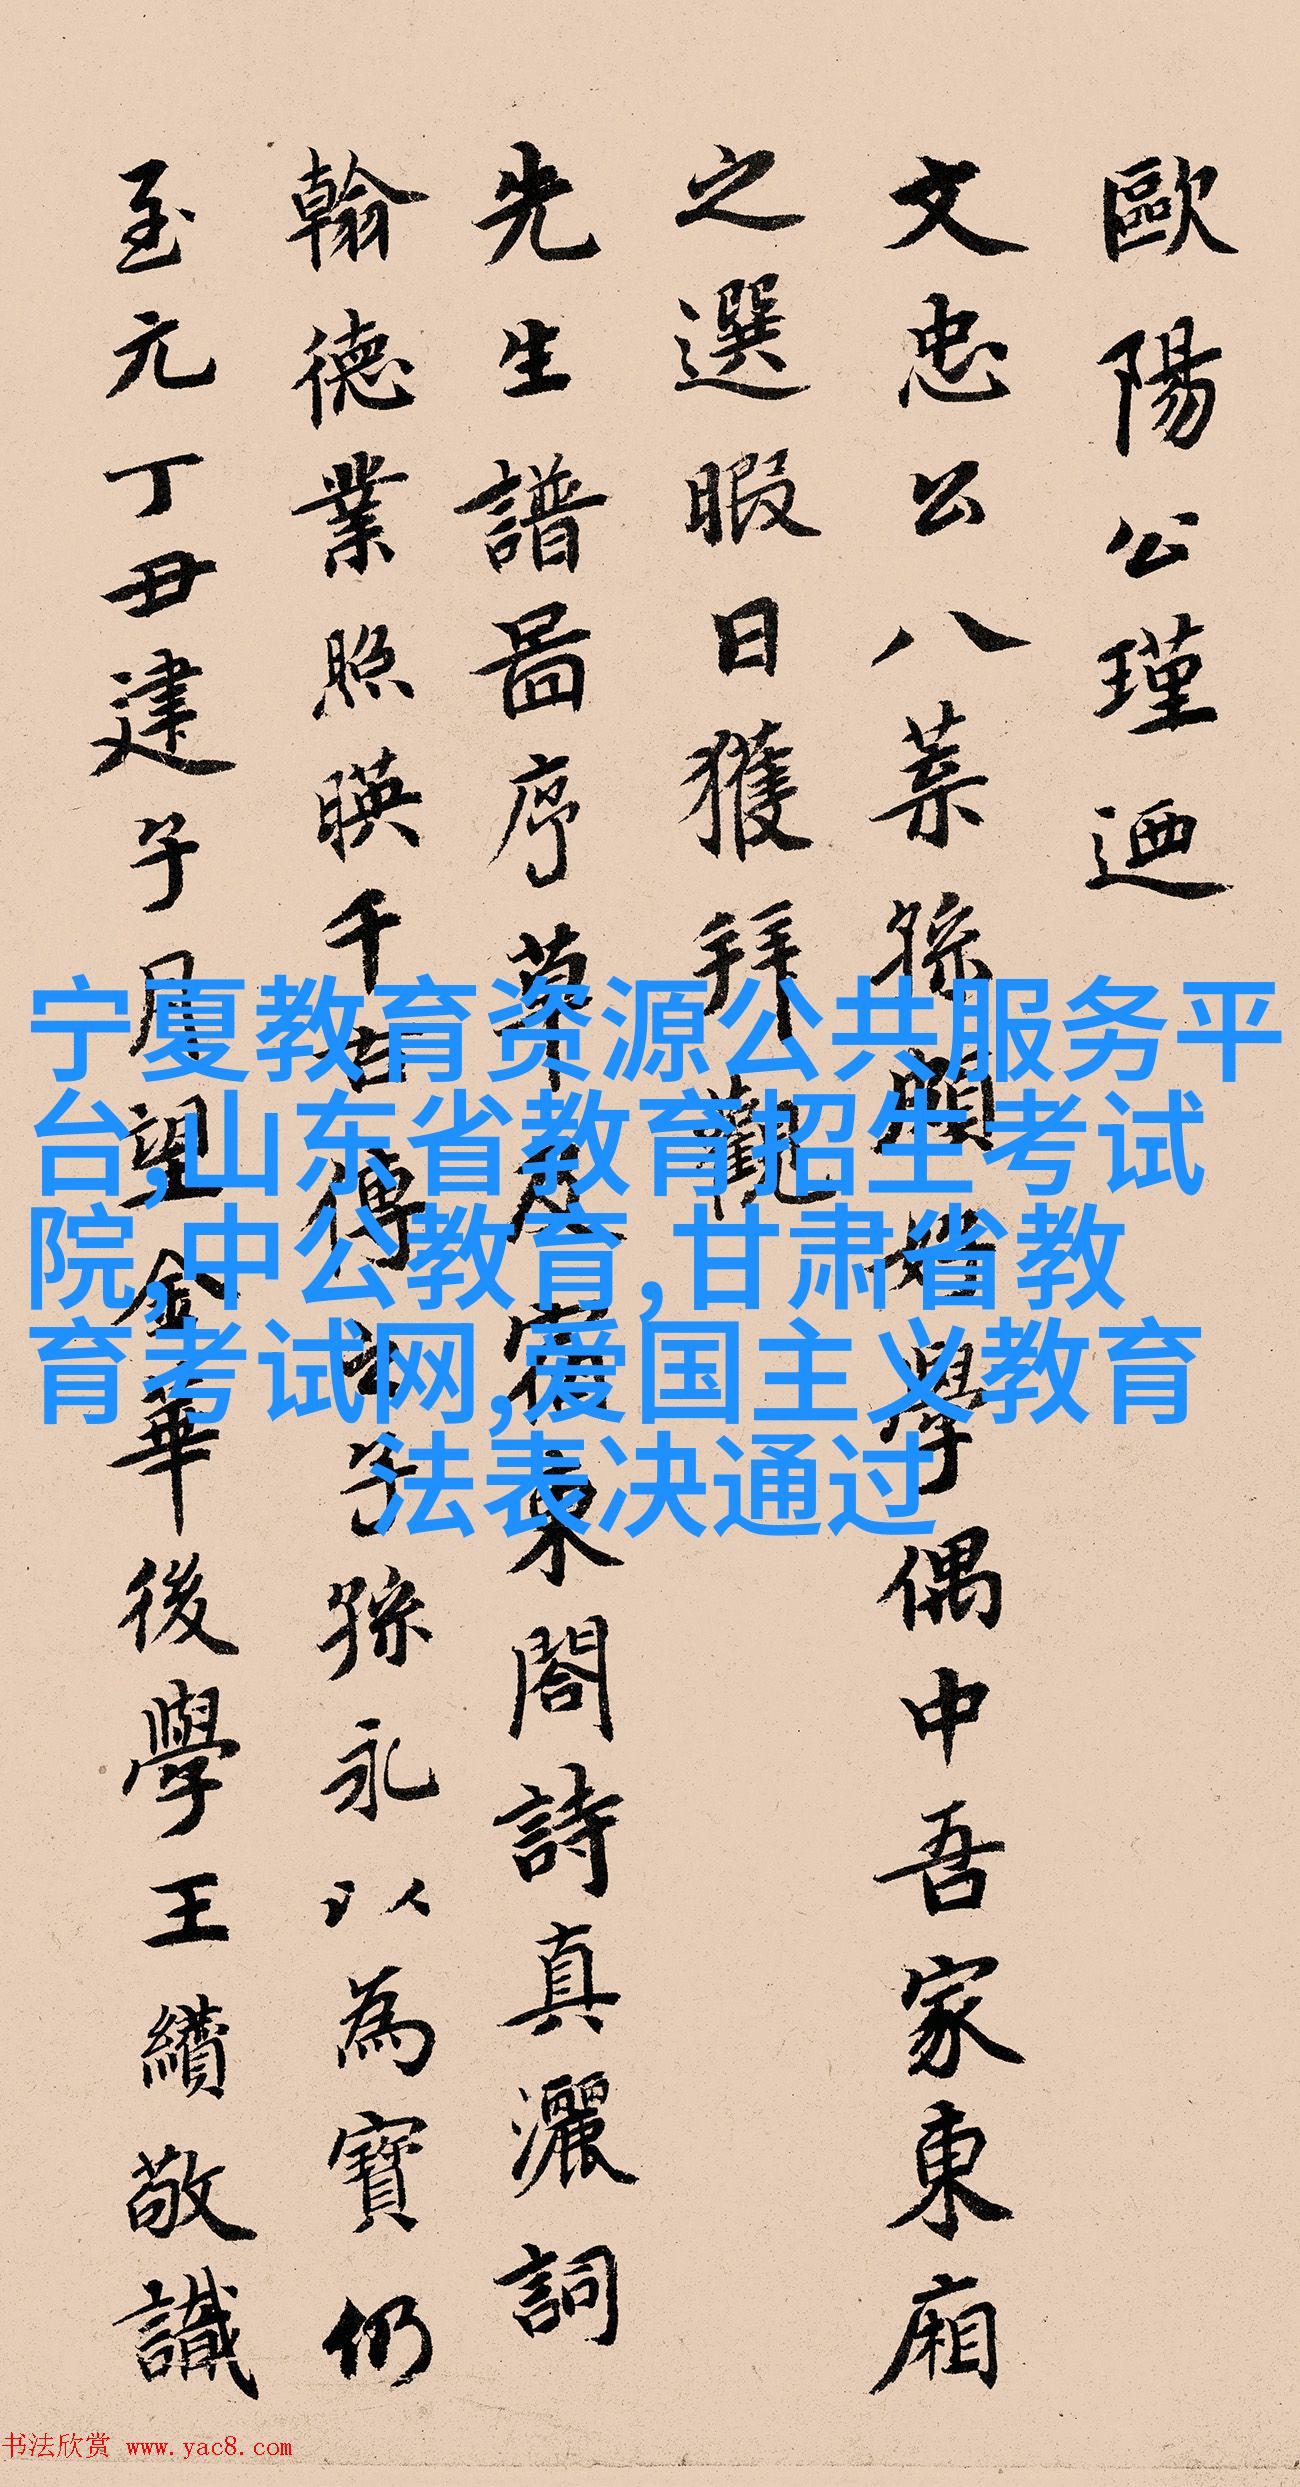 歐陽公瑾廼
文忠公八葉孫頗好學偶中吾家東廂
之選暇日獲拜觀
先生譜啚序草及家東閤詩真灑詞
翰德業照暎千古傳之子孫永以為寶仍
至元丁丑建子月望金華後學王績敬識
宁夏教育资源公共服务平
台,山东省教育招生考试
院,中公教育,甘肃省教
育考试网,爱国主义教育
法表决通过
书法欣赏 www.yac8.com